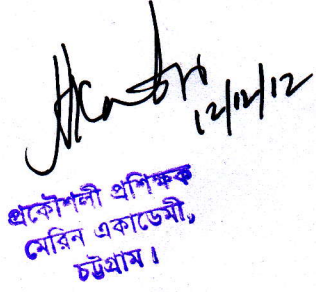 12/12/12
প্রকৌশলী প্রশিক্ষক
মেরিন একাডেমী,
চট্টগ্রাম।